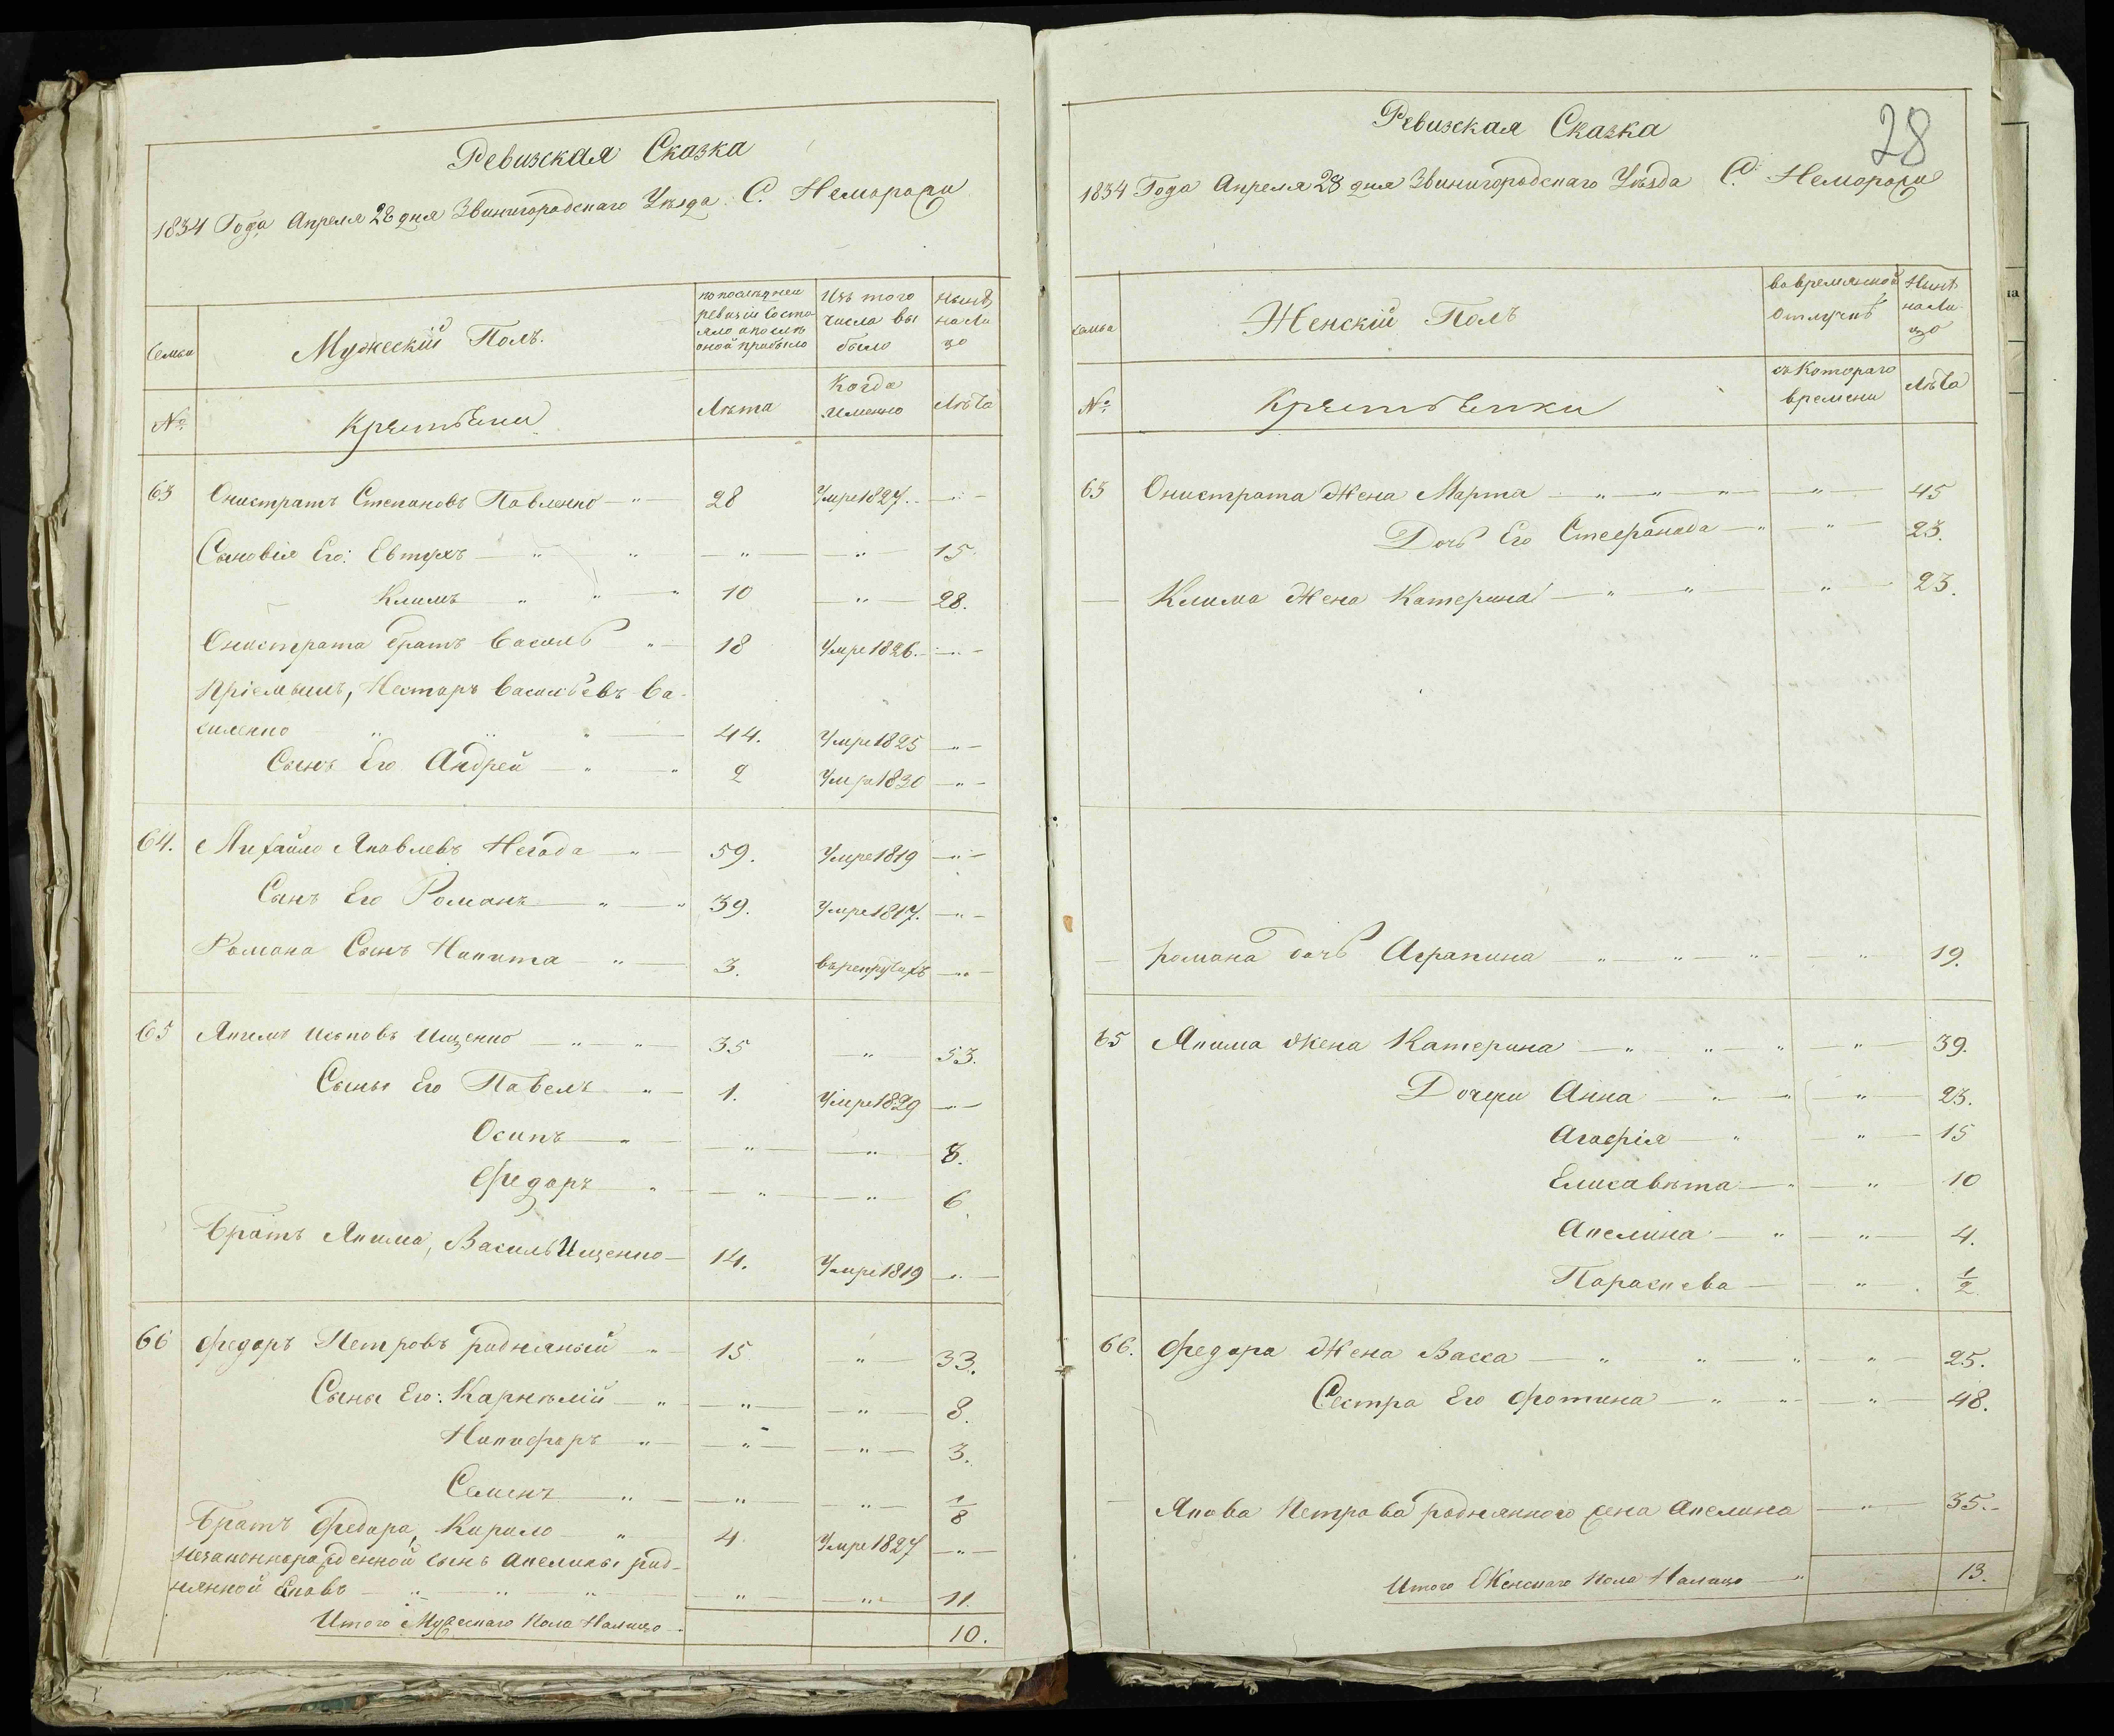 Ревизская Сказка
1834 Года Апреля 28 дня Звинигородскаго Уѣзда С. Неморожи
Семьи
Мужескій Полъ.
по послѣдней
ревизіи состо
яло и после
оной прибыло
Изъ того
числа вы
было
Нынѣ
на ли
цо
№
Крестьяни
Лѣта
Когда
именно
Лѣта
63 Онистратъ Степановъ Павленко 28 Умре 1827.
Сыновія Его: Евтухъ 15.
Климъ 10 28.
Онистрата братъ Василь 18 Умре 1826.
Пріемышъ, Несторъ Васильевъ Ва-
силенко 44. Умре 1825
Сынъ Его Андрей 2 Умре 1830
64. Михайло Яковлевъ Негода 59. Умре 1819
Сынъ Его Романъ 39. Умре 1817.
Романа Сынъ Никита 3. въ рекрутахъ
65 Якимъ Исыповъ Ищенко 35 53.
Сыны Его Павелъ 1. Умре 1829
Осипъ 8.
Федоръ 6.
Братъ Якима, Василь Ищенко 14. Умре 1819
66 Федоръ Петровъ родняный 15 33.
Сыны Его: Карнѣлій 8.
Никифоръ 3.
Семенъ 1/8
Братъ Федора, Кирило 4. Умре 1827
Незаконнорожденной сынъ Акелины род-
нянной Яковъ 11.
Итого Мужескаго пола Налицо 10.
28
Ревизская Сказка
1834 Года Апреля 28 дня Звинигородскаго Уѣзда С. Неморожи
семьи
Женскій Полъ
во времянной
отлучкѣ
Нинѣ
на ли
цо
№
Крестьянки
съ котораго
времени
Лѣта
63 Онистрата Жена Марта 45
Дочь Его Стефанида 23.
Клима Жена Катерина 23.
романа дочь Агрипина 19.
65 Якима Жена Катерина 39.
Дочери Анна 23.
Агафія 15
Елисавѣта 10
Акелина 4.
Параскева 1/2
66. Федора Жена Васса 25.
Сестра Его Фотина 48.
Якова Петрова роднянного жена Акелина 35.
Итого Женскаго пола Налицо 13.